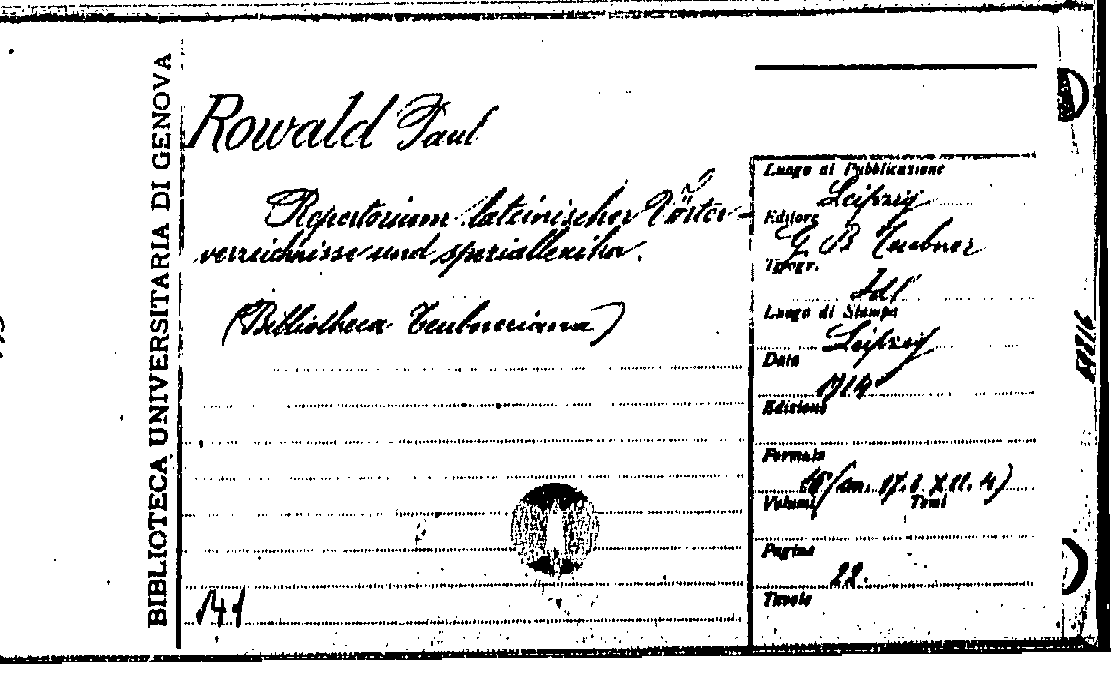 BIBLIOTECA UNIVERSITARIA DI GENOVA
Rowald Paul
Repertorium lateinischer Wörter-
verzeichnisse und speziallexika.
(Bibliotheca Teubneriana)
141
Luogo di Pubblicazione
Leipzig
Editore
G. B Teubner
Tipogr.
Id
Luogo di Stampa
Leipzig
Data
1914
Edizione
Formato
16 (cm. 17.8 X 11.4)
Volumi Tomi
Pagine
22.
Tavole